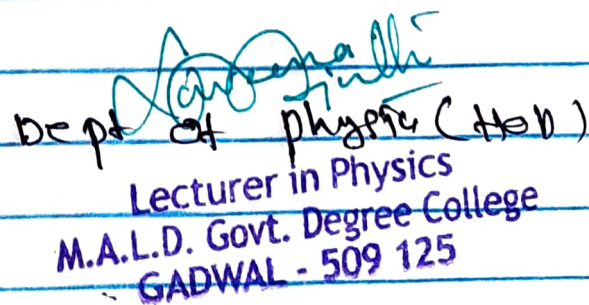 Dept of physic (HoD)
Lecturer in Physics
M.A.L.D. Govt. Degree College
GADWAL - 509 125